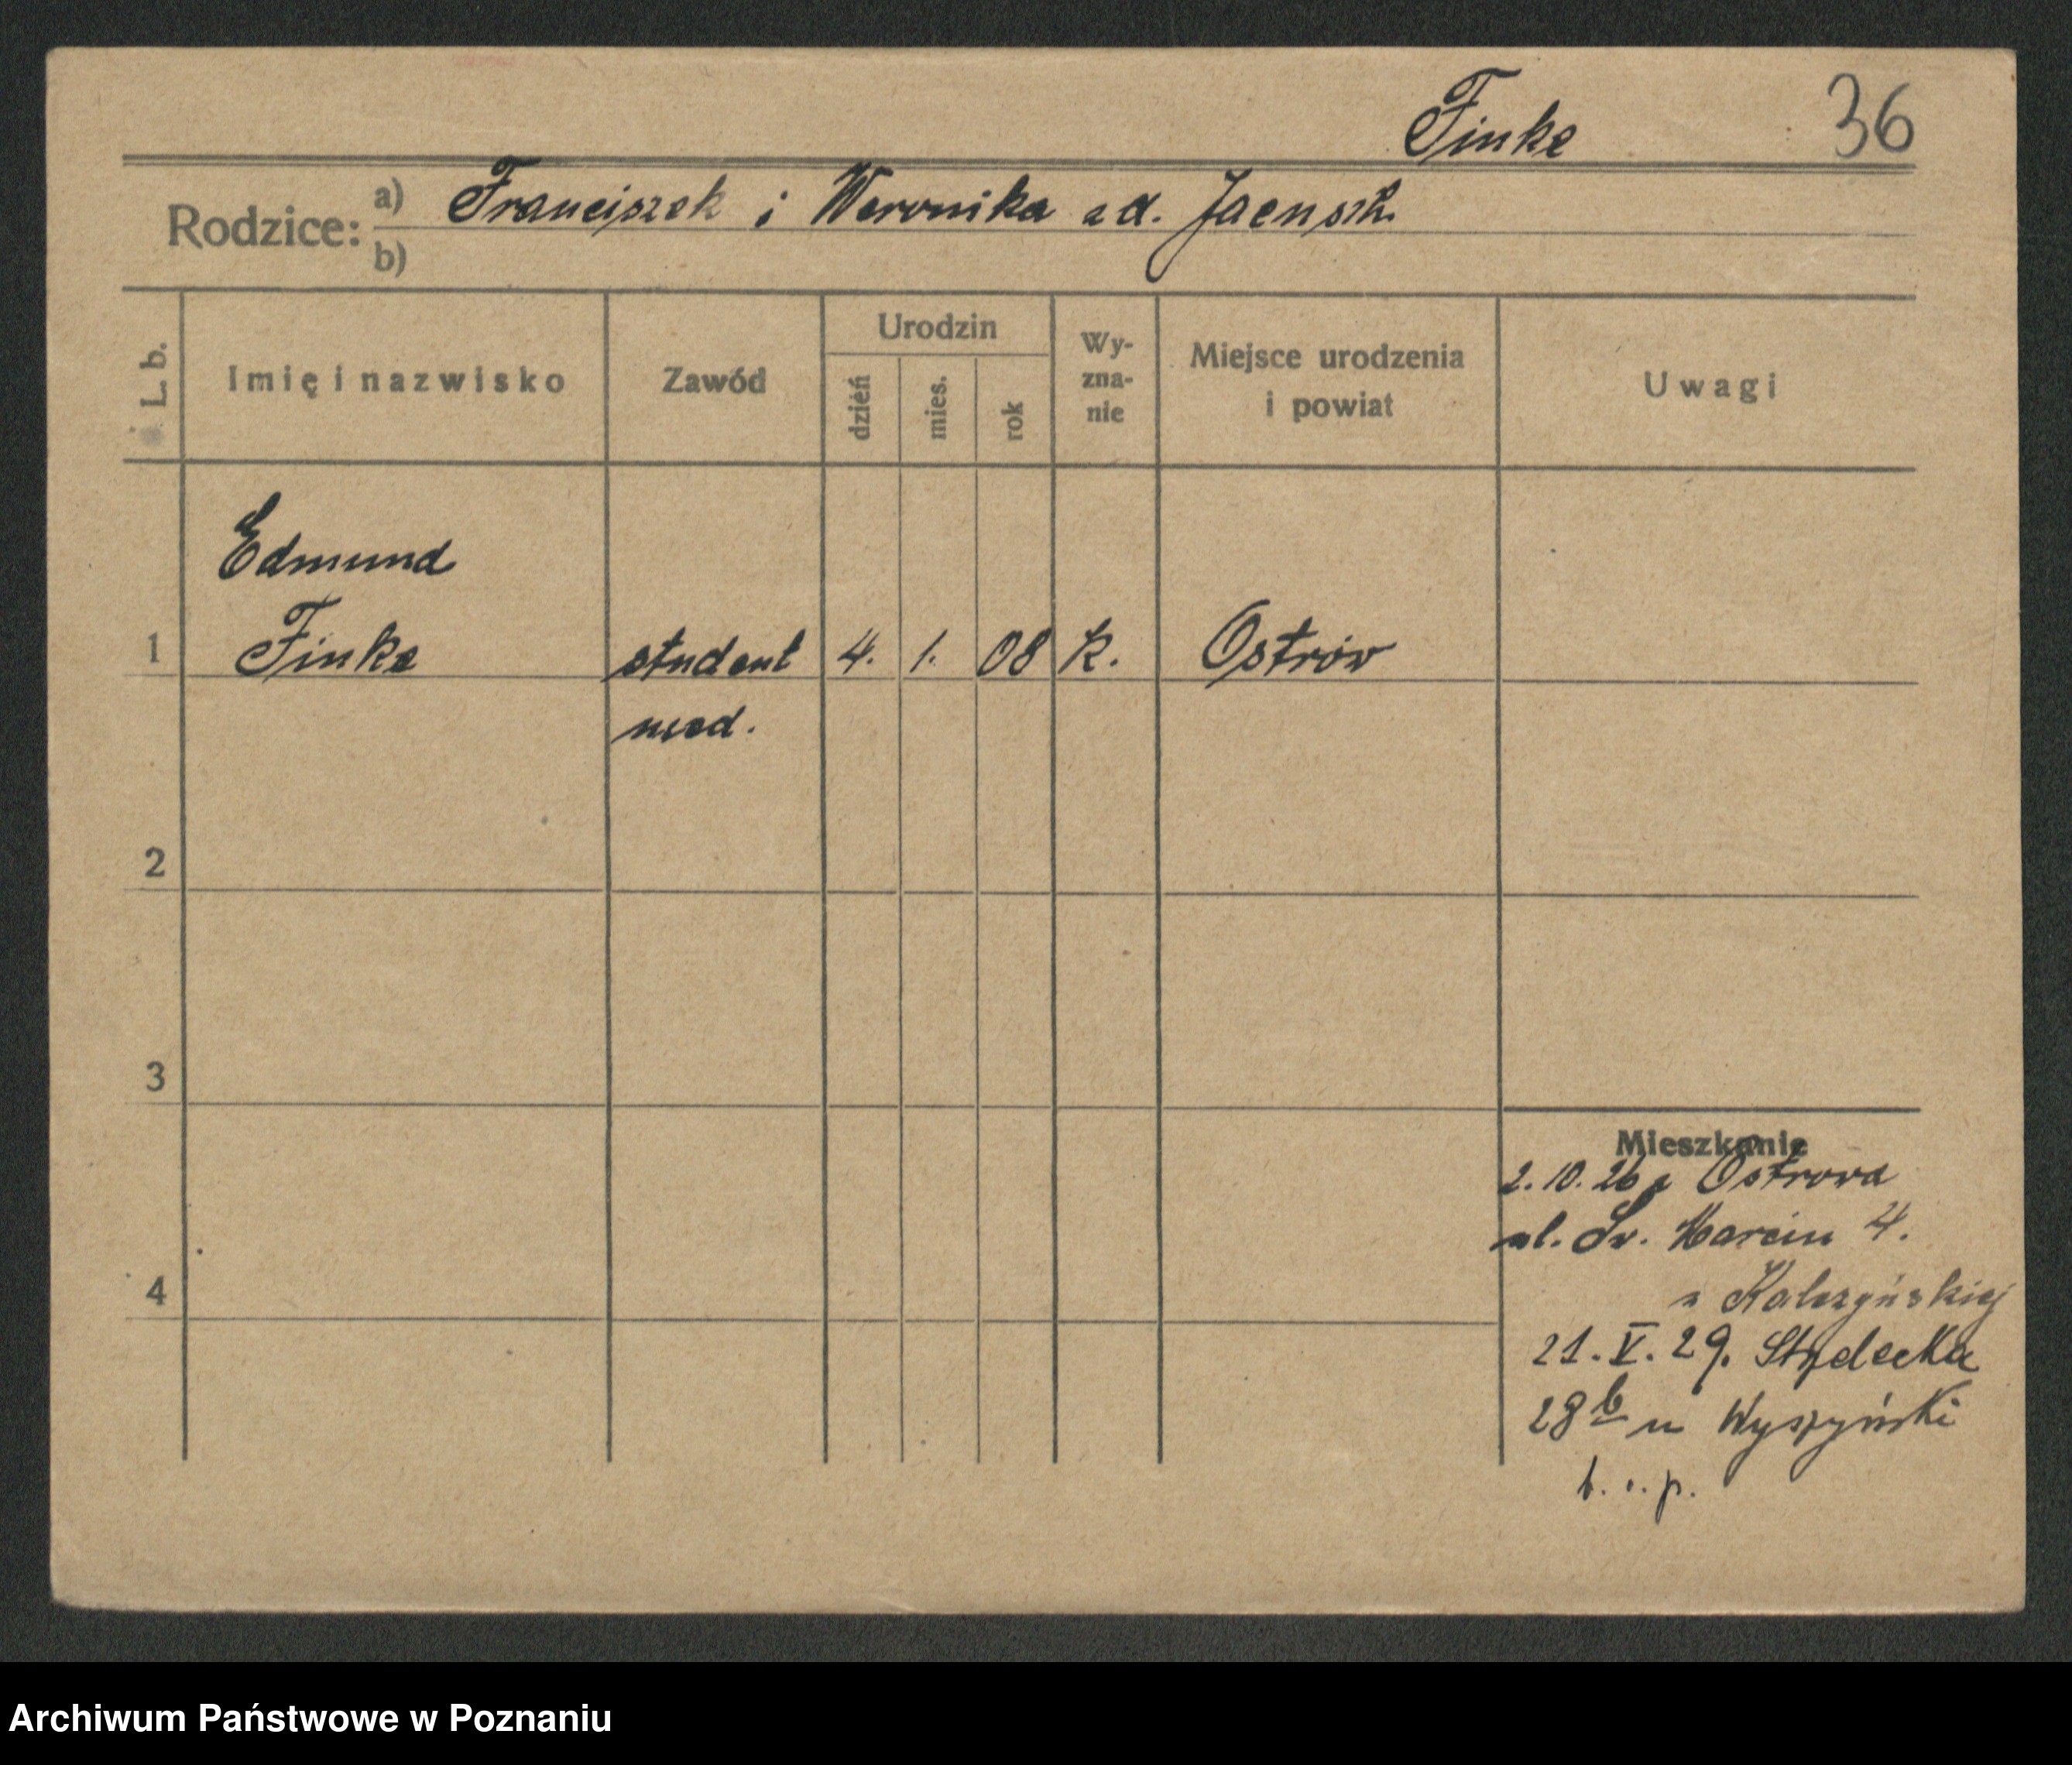 Finke 36
Rodzice: a) Franciszek i Weronika zd. Jaensch.
b)
L. b. Imię i nazwisko Zawód Urodzin dzień mies. rok Wy-zna-nie Miejsce urodzenia i powiat Uwagi
Edmund
1 Finke student 4. 1. 08 k. Ostrów
med.
2
3
Mieszkanie
2. 10. 26 z Ostrowa
ul. Św. Marcin 4.
4
21. V. 29. Strzelecka
28b u Wyszyński
Archiwum Państwowe w Poznaniu